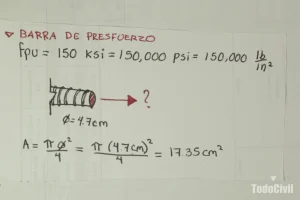 ▼ BARRA DE PRESFUERZO
fpu = 150 ksi = 150,000 psi = 150,000 lb/in²
→ ?
ø = 4.7cm
A = π ø²/4 = π (4.7cm)²/4 = 17.35 cm²
TodoCivil